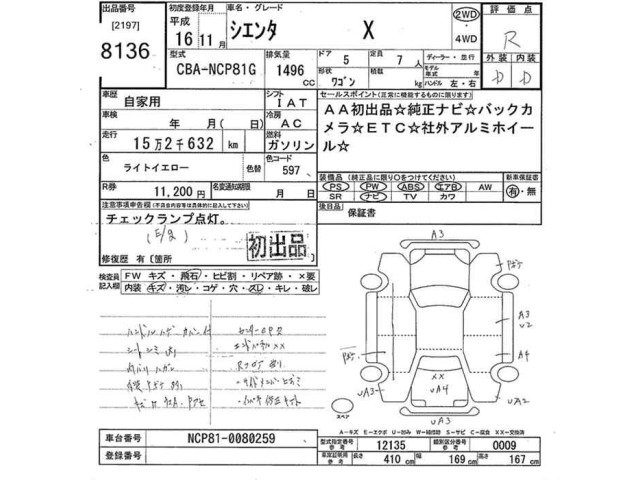 出品番号
[2197]
8136
初度登録年月
平成
16年 11月
車名・グレード
シエンタ X
2WD
4WD
評価点
R
外装 内装
D D
型式
CBA-NCP81G
排気量
1496 cc
ドア 5
形状 ワゴン
定員 7人
積載 kg
ディーラー・並行
モデル年式 年式
ハンドル 左・右
車歴
自家用
シフト
IAT
車検
年 月( 日)
冷房
AC
走行
15万2千632 km
燃料
ガソリン
色
ライトイエロー
色替
色コード
597
R券
11,200 円
名変通知期限
月 日
セールスポイント(正常に機能するものに限ります)
AA初出品☆純正ナビ☆バックカ
メラ☆ETC☆社外アルミホイー
ル☆
装備品(純正品に限り○をつけてください)
PS PW ABS エアB AW
SR ナビ TV カワ
新車保証書
有・無
後日品
保証書
注意事項申告欄(不具合内容は具体的に記入して下さい)
チェックランプ点灯。
(E/g)
初出品
修復歴 有〔箇所
検査員記入欄
FW キズ・飛石・ヒビ割・リペア跡・×要
内装 キズ・汚レ・コゲ・穴・ズレ・キレ・破レ
A3
A3
U2
A4
XX
UA4
UA3
UA2
A3
スペア
A-キズ E-エクボ U-凹み W-補修跡 S-サビ C-腐食 XX-交換済
車台番号
NCP81-0080259
登録番号
型式指定番号 参考
12135
類別区分番号 参考
0009
車庫証明用 参考
長さ 410 cm
幅 169 cm
高さ 167 cm